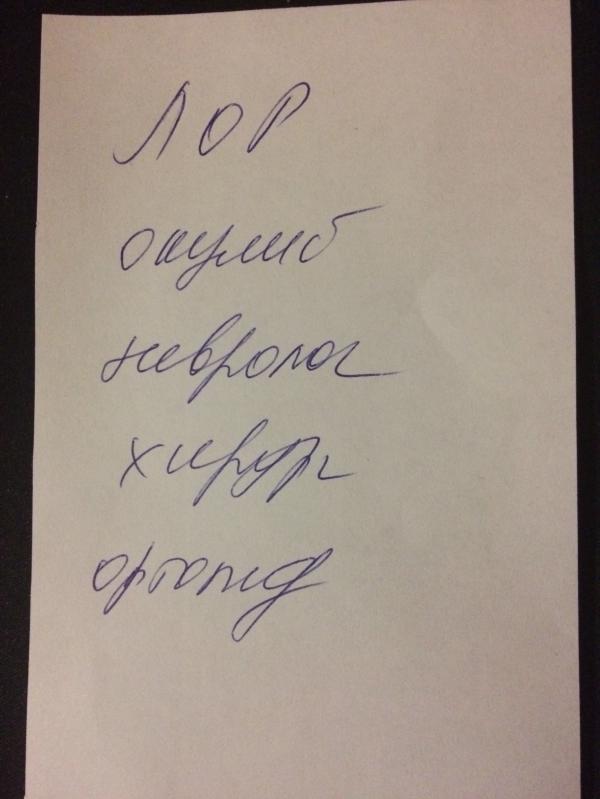 ЛОР
окулист
невролог
хирург
ортопед